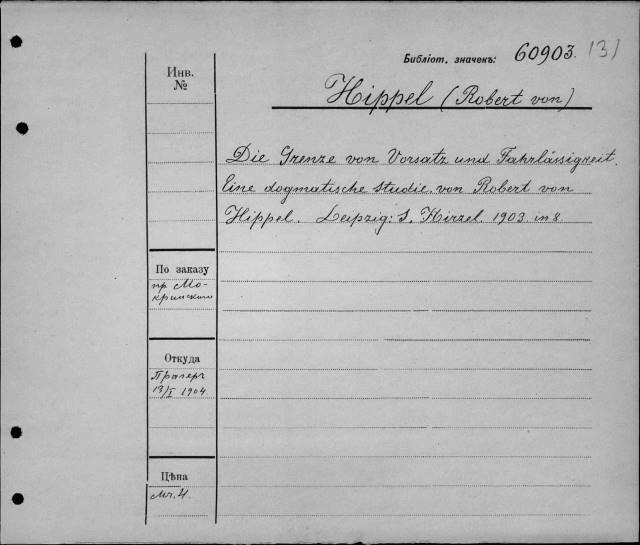 Библіот. значекъ: 60903. 13)
Инв.
№
Hippel (Robert von)
Die Grenze von Vorsatz und Fahrlässigkeit.
Eine dogmatische Studie von Robert von
Hippel. Leipzig: S. Hirzel. 1903. in 8.
По заказу
пр. Мо-
кринскаго
Откуда
Прагеръ
13/I 1904
Цѣна
Мк. 4.